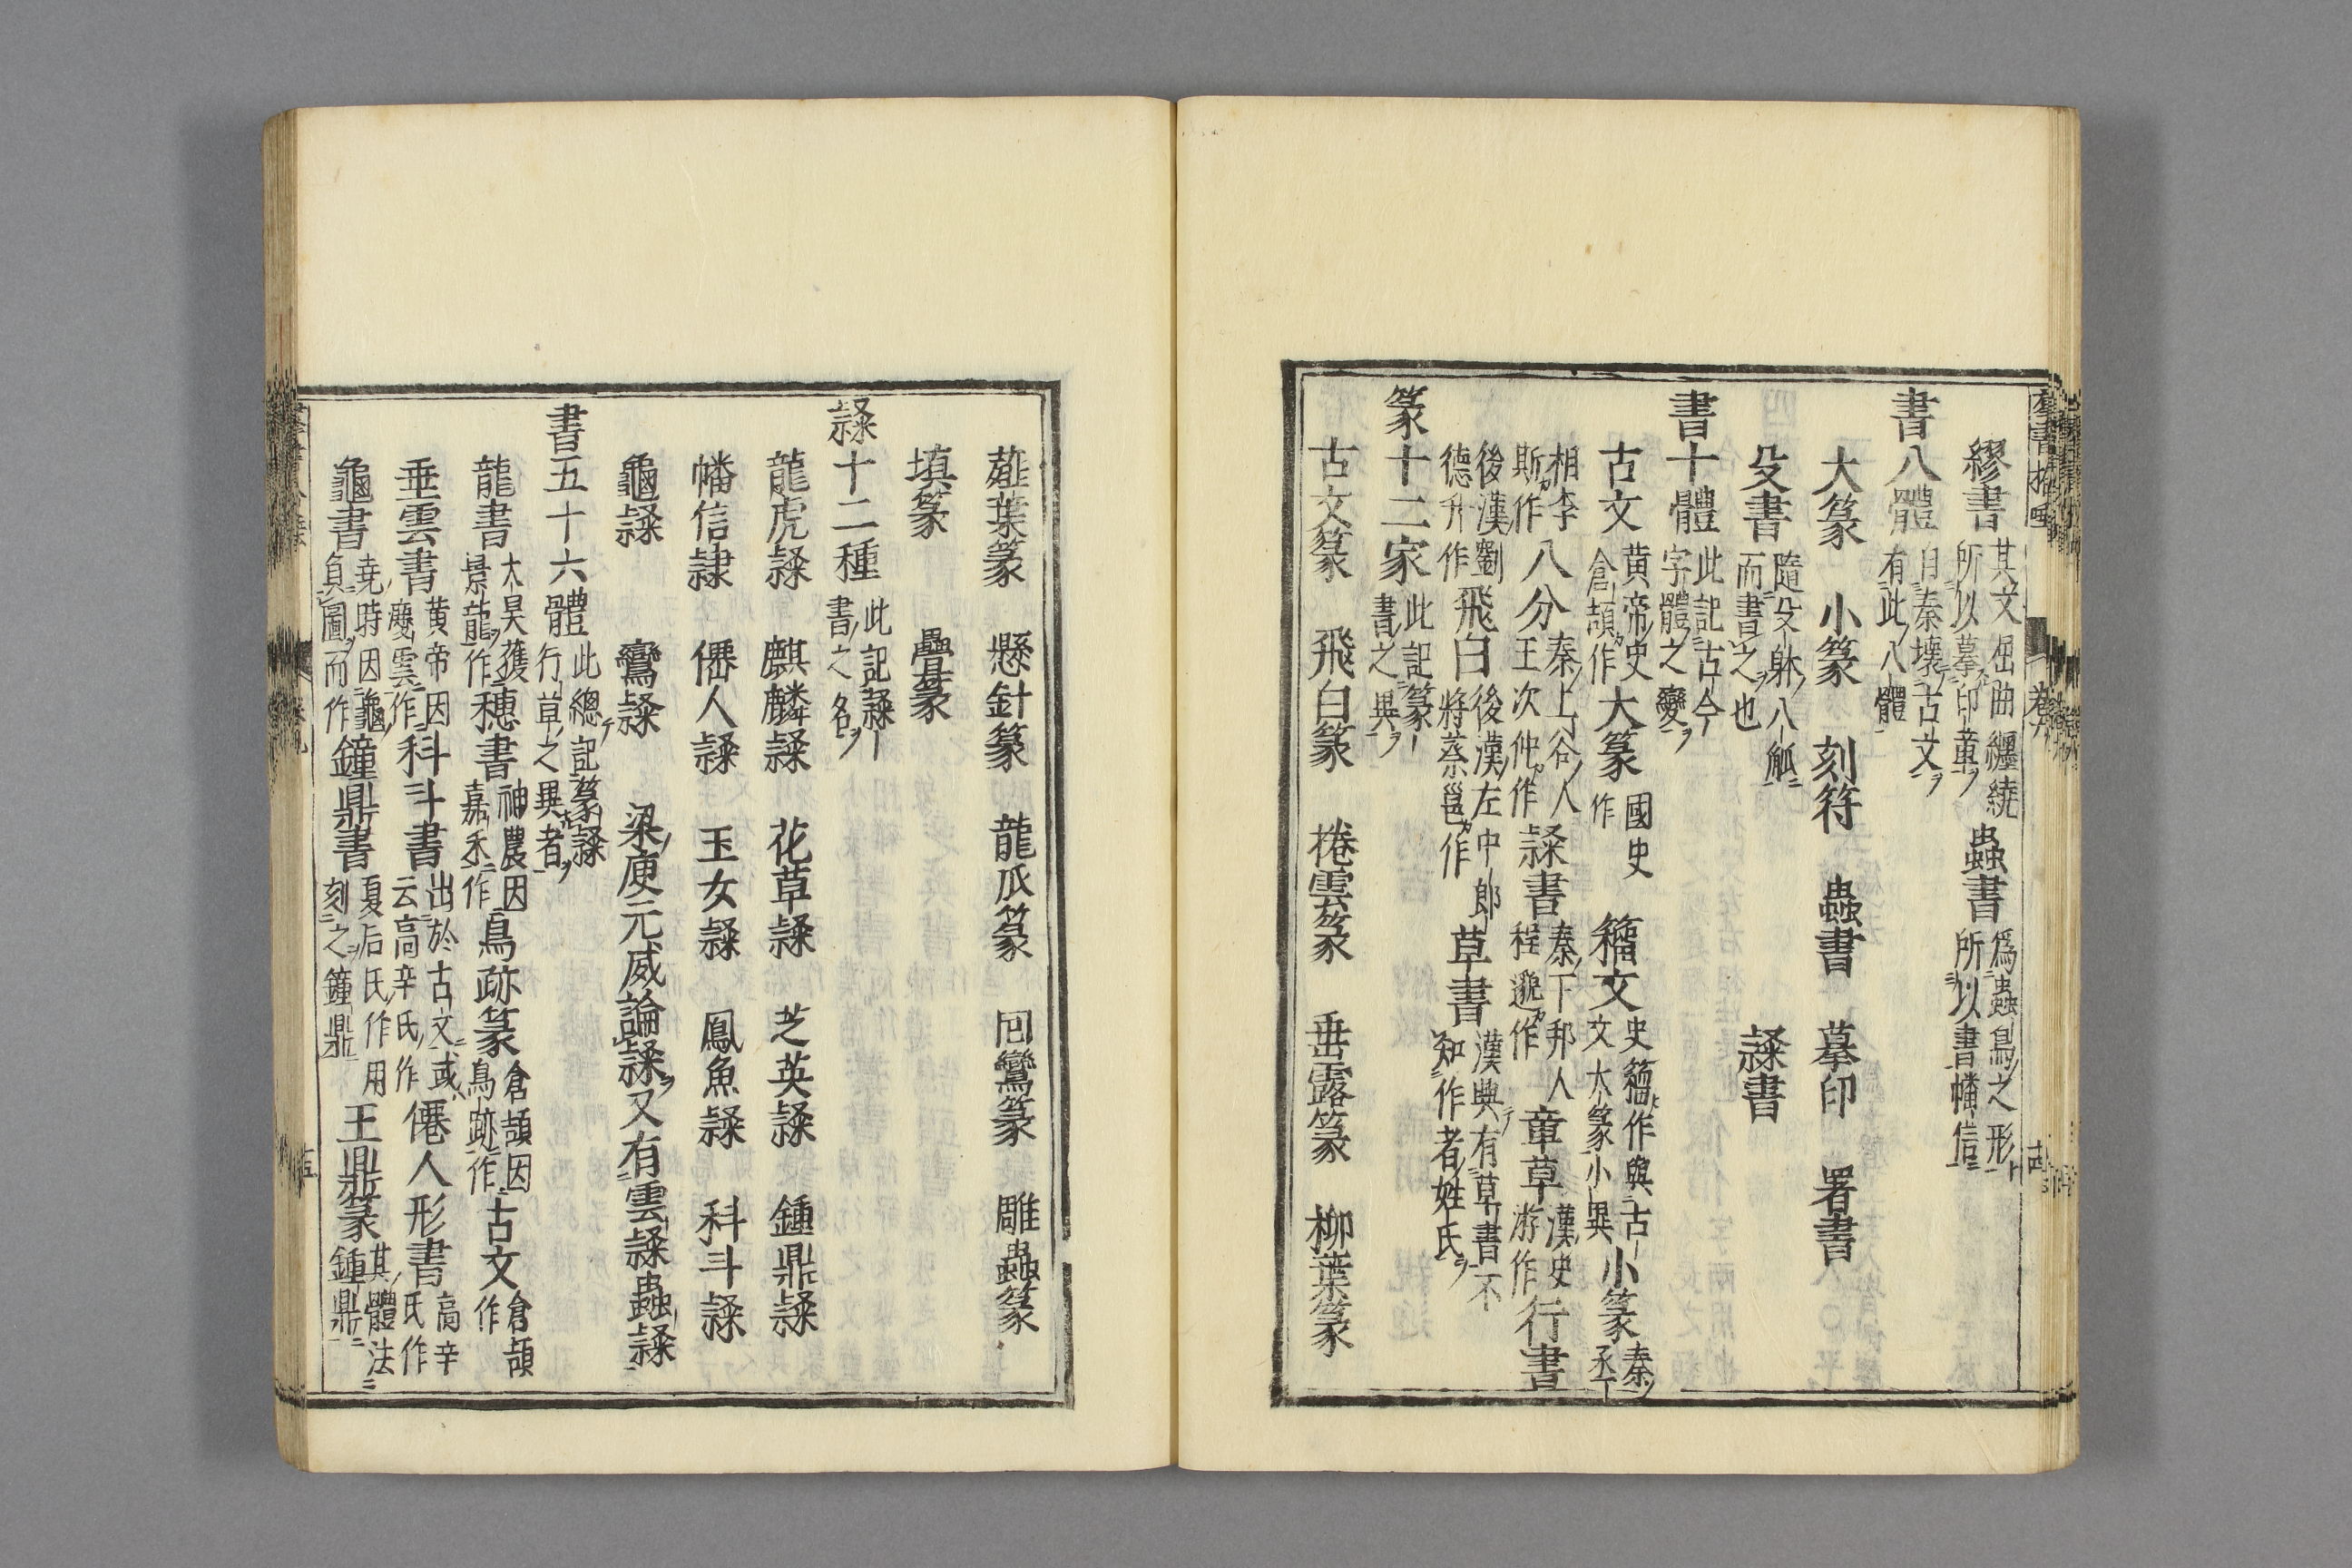 繆書 其文屈曲纒繞所以摹印章ノ 蟲書 爲蟲鳥ノ之形所以書幡信
書八體 自秦壊古文ヲ有此八體
大篆 小篆 刻符 蟲書 摹印 署書
殳書 隨殳躰八觚而書之也 隷書
書十體 此記古今字體之變ヲ
古文 黄帝史倉頡作 大篆 國史作 籀文 史籀作與古文大篆小異 小篆 秦ノ丞
相李斯作 八分 秦上谷人王次仲作 隷書 秦下邦人程邈作 章草 漢史游作 行書
後漢劉德升作 飛白 後漢左中郎將蔡邕作 草書 漢興有草書不知作者姓氏ヲ
篆十二家 此記篆書之異ヲ
古文篆 飛白篆 捲雲篆 垂露篆 柳葉篆
薤葉篆 懸針篆 龍爪篆 回鸞篆 雕蟲篆
填篆 疊篆
隷十二種 此記隷書之名ヲ
龍虎隷 麒麟隷 花草隷 芝英隷 鍾鼎隷
幡信隷 僊人隷 玉女隷 鳳魚隷 科斗隷
龜隷 鸞隷 梁庾元威論隷ヲ又有雲隷蟲隷
書五十六體 此總記篆隷行草之異者ヲ
龍書 太昊獲景龍作 穗書 神農因嘉禾作 鳥跡篆 倉頡因鳥跡作 古文 倉頡作
垂雲書 黄帝因慶雲作 科斗書 出於古文或云高辛氏作 僊人形書 高辛氏作
龜書 堯時因龜負圖而作 鐘鼎書 夏后氏作用刻之鐘鼎 王鼎篆 其體法鍾鼎